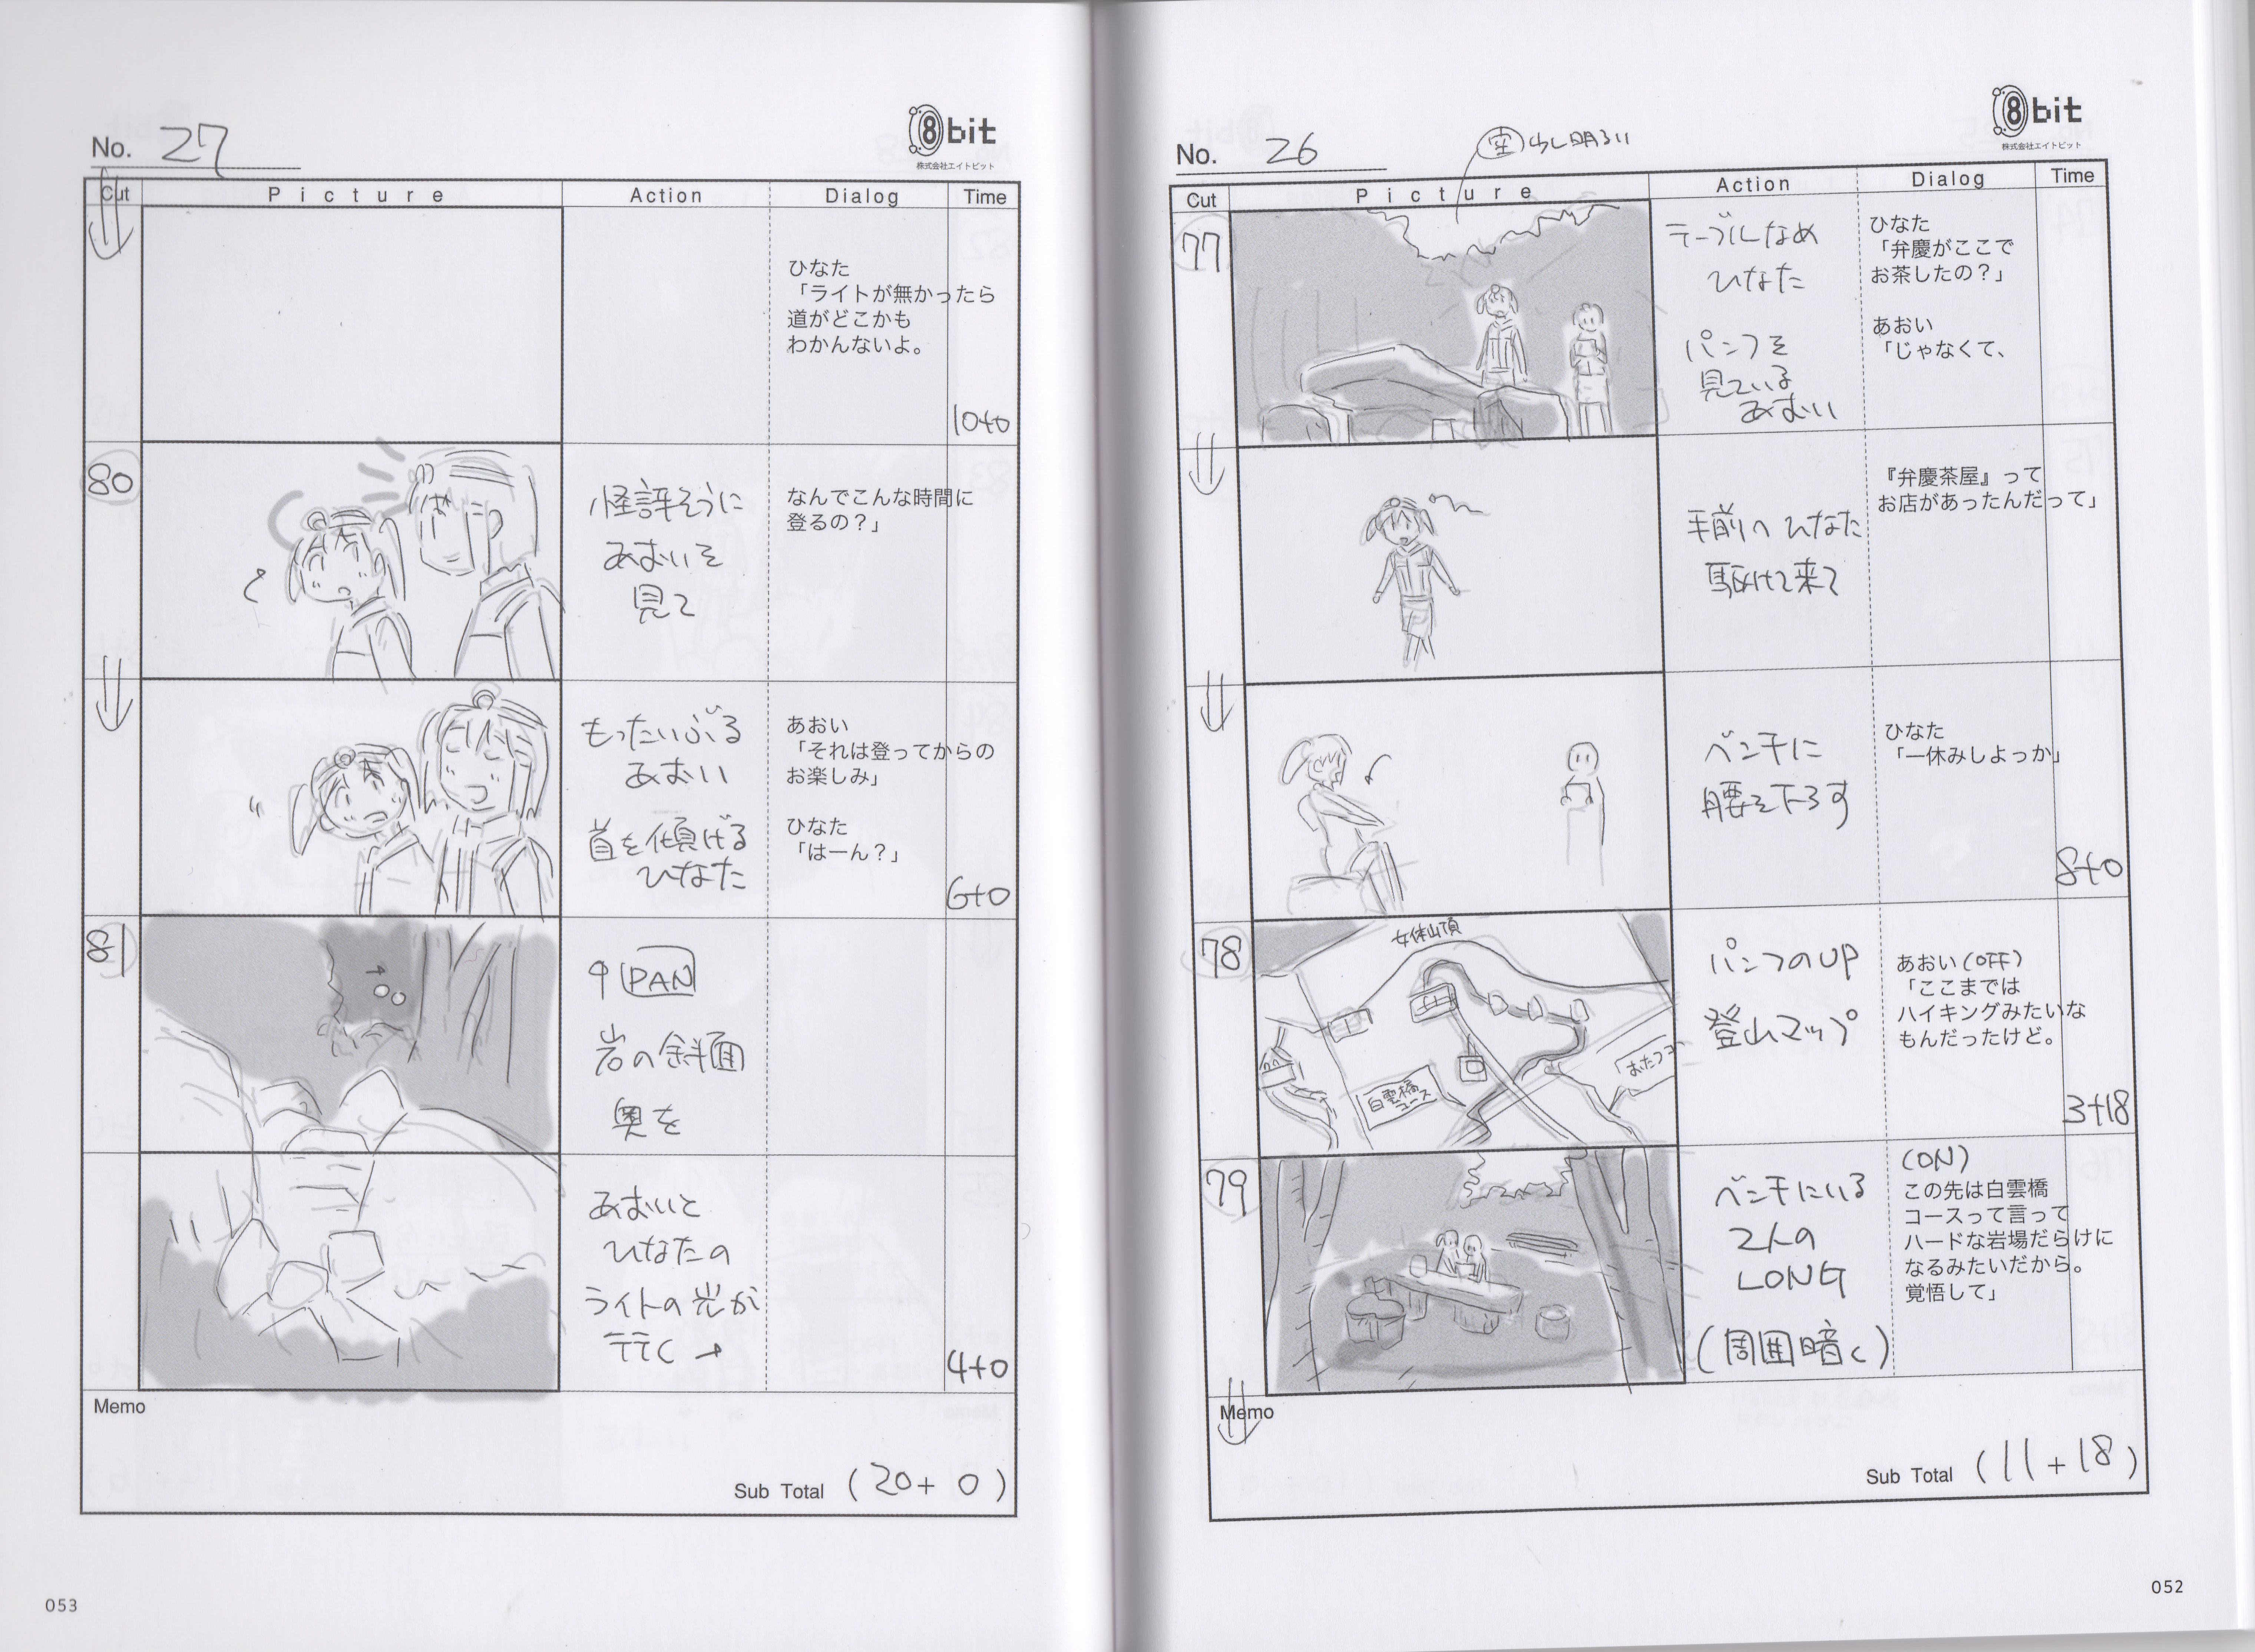 No. 26
空 少し明るい
8bit
株式会社エイトビット
Cut
Picture
Action
Dialog
Time
77
テーブルなめ
ひなた
パンフを
見ている
あおい
ひなた
「弁慶がここで
お茶したの？」
あおい
「じゃなくて、
手前へ ひなた
駆けて来て
『弁慶茶屋』って
お店があったんだって」
ベンチに
腰を下ろす
ひなた
「一休みしよっか」
8+0
78
女体山頂
白雲橋
コース
おたつコ
パンフのUP
登山マップ
あおい(OFF)
「ここまでは
ハイキングみたいな
もんだったけど。
3+18
79
ベンチにいる
2人の
LONG
(周囲暗く)
(ON)
この先は白雲橋
コースって言って
ハードな岩場だらけに
なるみたいだから。
覚悟して」
Memo
Sub Total (11+18)
052
No. 27
8bit
株式会社エイトビット
Cut
Picture
Action
Dialog
Time
ひなた
「ライトが無かったら
道がどこかも
わかんないよ。
10+0
80
怪訝そうに
あおいを
見て
なんでこんな時間に
登るの？」
もったいぶる
あおい
首を傾げる
ひなた
あおい
「それは登ってからの
お楽しみ」
ひなた
「はーん？」
6+0
81
↑PAN
岩の斜面
奥を
あおいと
ひなたの
ライトの光が
行く→
4+0
Memo
Sub Total (20+0)
053